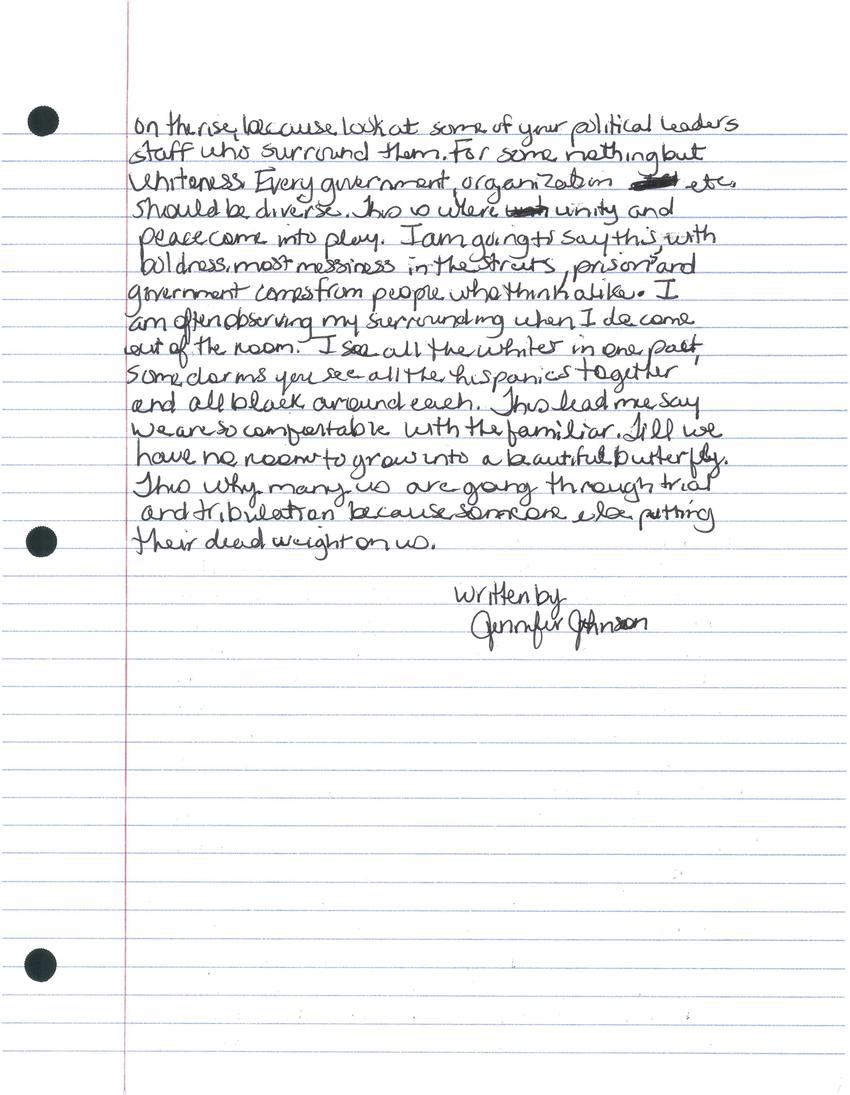 on the rise, because, look at some of your political leaders
staff who surround them. For some nothing but
whiteness. Every government, organization etc.
should be diverse. This is where unity and
peace come into play. I am going to say this, with
boldness, most messiness in the streets, prison and
government comes from people who think alike. I
am often observing my surrounding when I do come
out of the room. I see all the whites in one part,
some dorms you see all the hispanics together
and all black around each. This lead me say
we are so comfortable with the familiar. Till we
have no room to grow into a beautiful butterfly.
This why many us are going through trial
and tribulation because someone else putting
their dead weight on us.
Written by
Jennifer Johnson